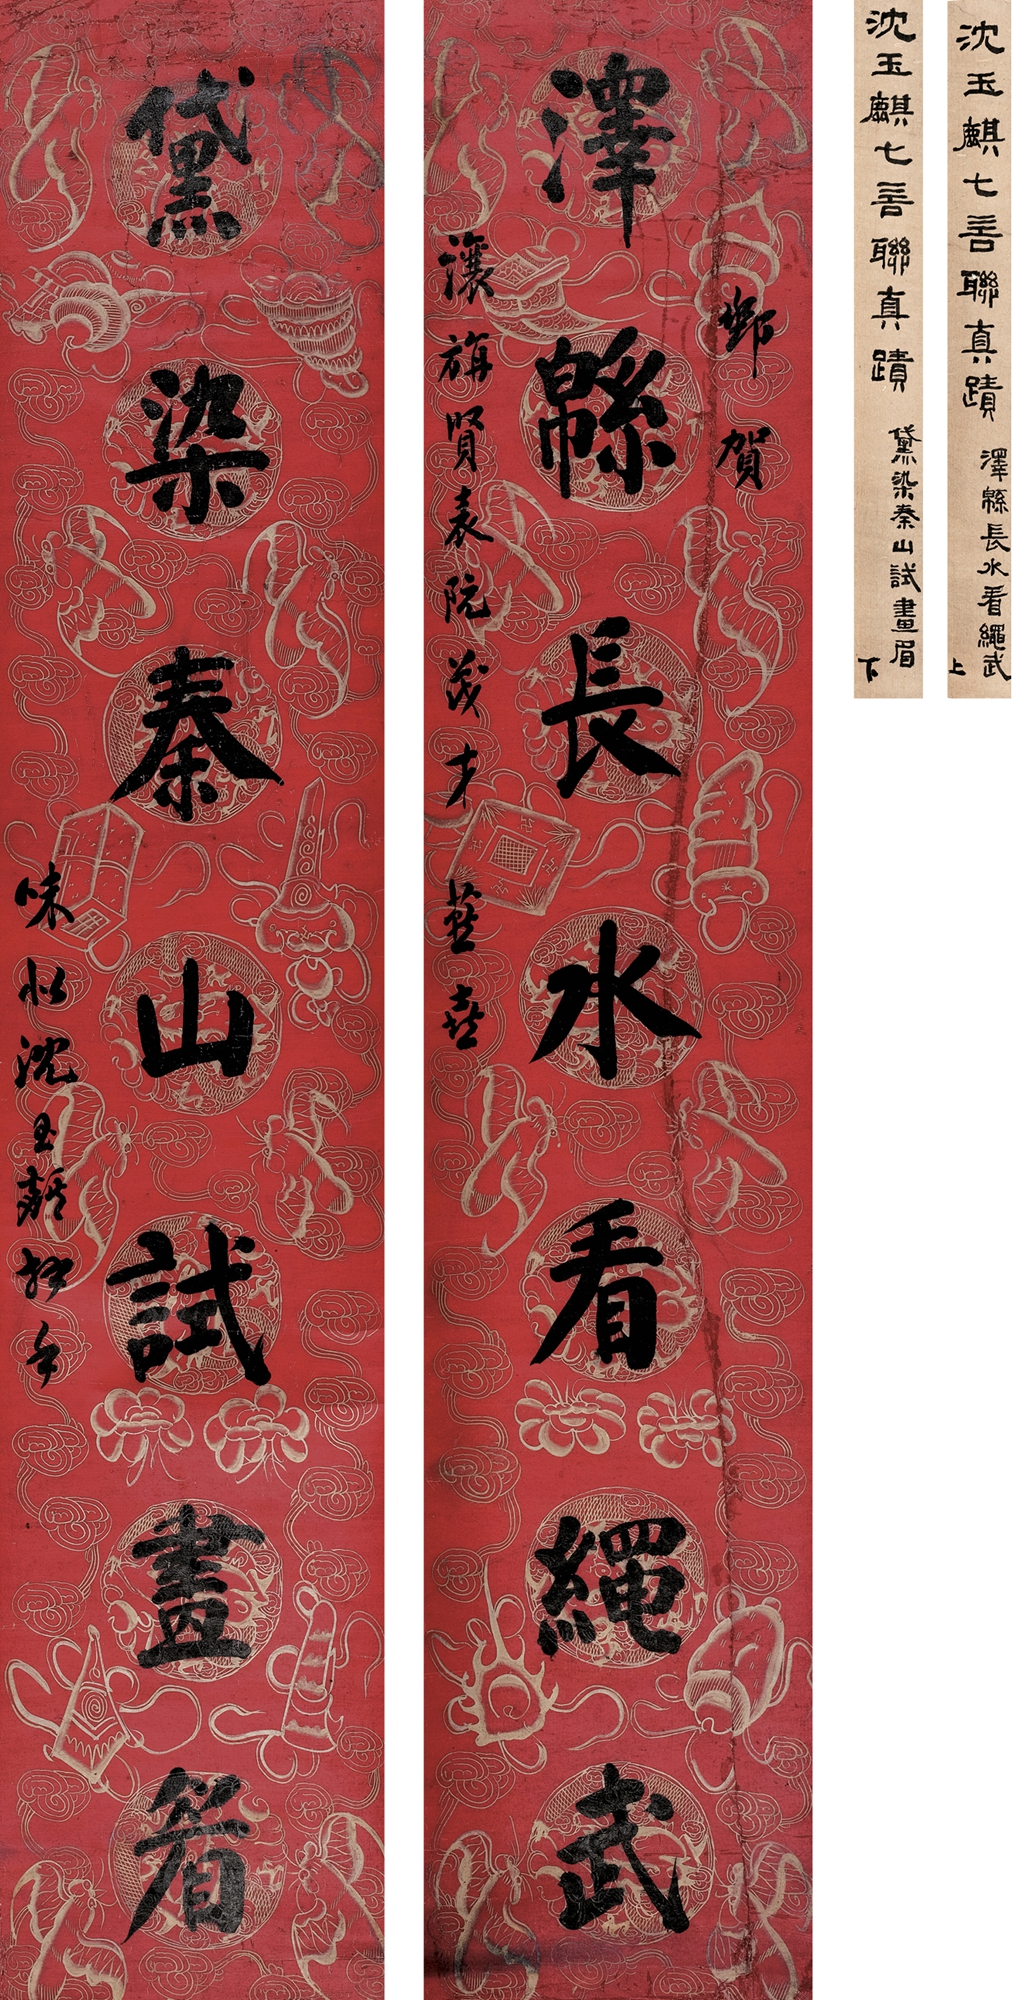 沈玉麒七言聯真蹟 澤緜長水看繩武 上
沈玉麒七言聯真蹟 黛染秦山試畫眉 下
賀
澤緜長水看繩武
瀼旃賢表阮茂才燕喜
黛染秦山試畫眉
味松沈玉麒拜手